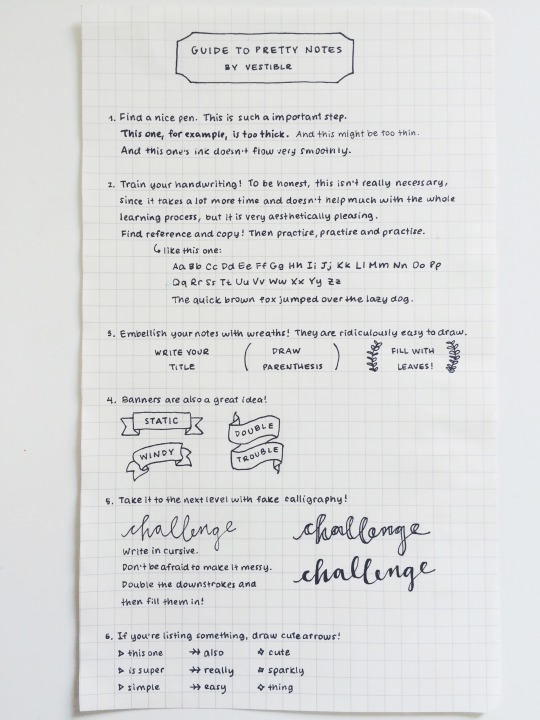 GUIDE TO PRETTY NOTES
BY VESTIBLR
1. Find a nice pen. This is such a important step.
This one, for example, is too thick. And this might be too thin.
And this one's ink doesn't flow very smoothly.
2. Train your handwriting! To be honest, this isn't really necessary,
since it takes a lot more time and doesn't help much with the whole
learning process, but it is very aesthetically pleasing.
Find reference and copy! Then practise, practise and practise.
like this one:
Aa Bb Cc Dd Ee Ff Gg Hh Ii Jj Kk Ll Mm Nn Oo Pp
Qq Rr Ss Tt Uu Vv Ww Xx Yy Zz
The quick brown fox jumped over the lazy dog.
3. Embellish your notes with wreaths! They are ridiculously easy to draw.
WRITE YOUR TITLE
( DRAW PARENTHESIS )
FILL WITH LEAVES!
4. Banners are also a great idea!
STATIC
WINDY
DOUBLE
TROUBLE
5. Take it to the next level with fake calligraphy!
challenge
Write in cursive.
Don't be afraid to make it messy.
Double the downstrokes and
then fill them in!
challenge
challenge
6. If you're listing something, draw cute arrows!
▷ this one
▷ is super
▷ simple
↠ also
↠ really
↠ easy
✧ cute
✧ sparkly
✧ thing